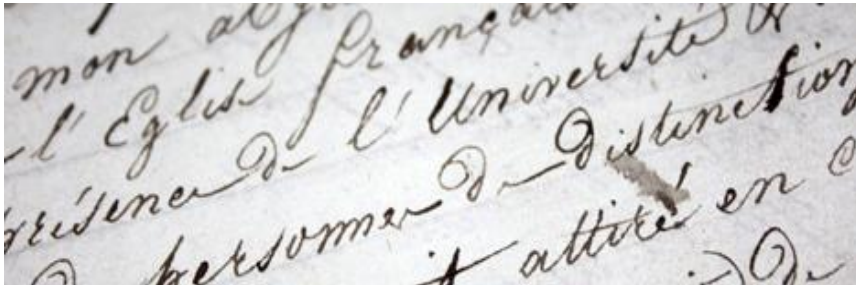 mon
l'Eglise française
présence de l'Université &
personnes de distinction
attiré en
de